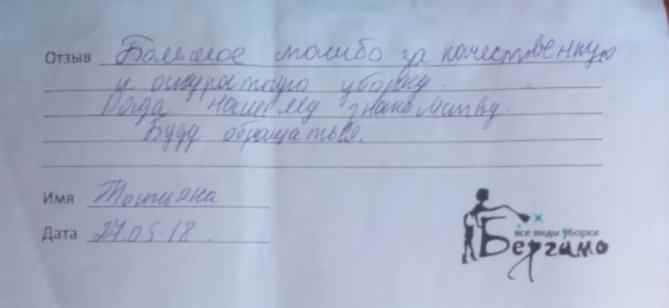 Отзыв Большое спасибо за качественную
и аккуратную уборку.
Рада нашему знакомству.
Буду обращаться.
Имя Татьяна
Дата 27.05.18.
все виды уборки
Бергамо